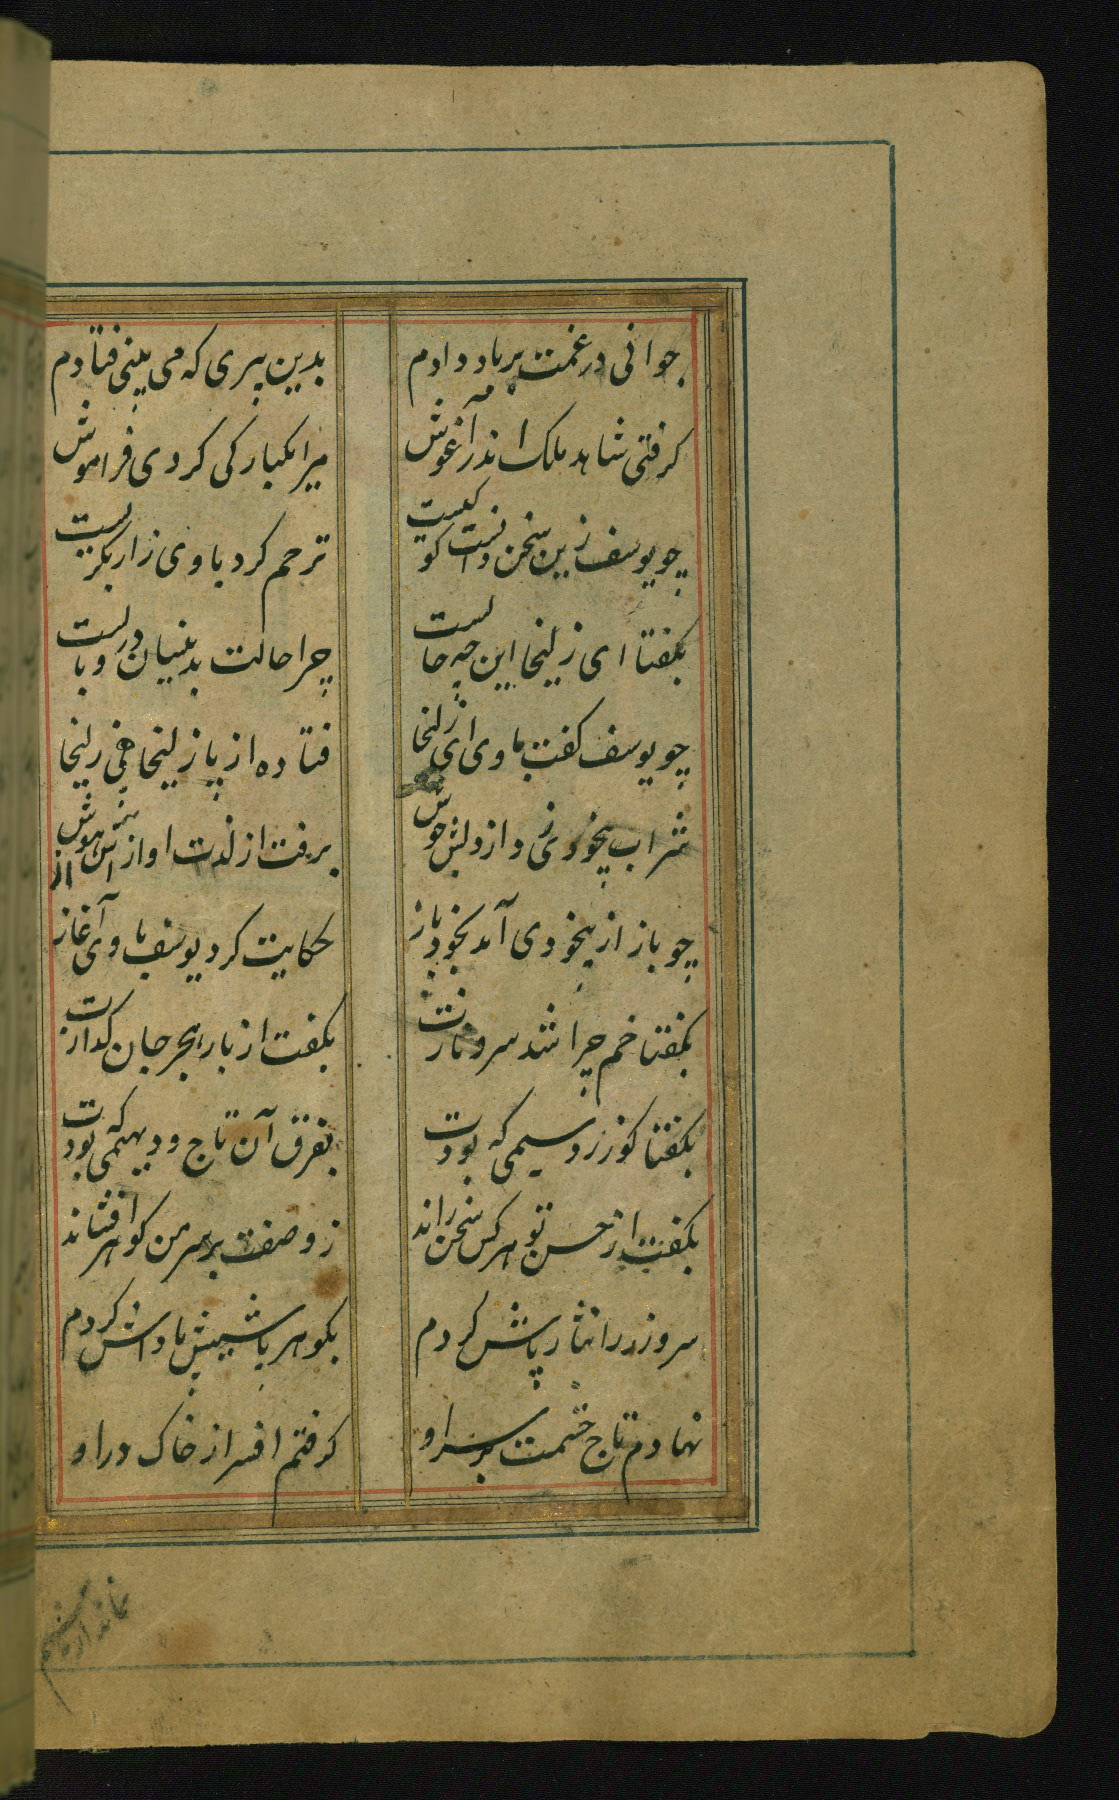 جوانی در غمت بر باد دادم بدین پیری که می بینی فتادم
کرفتی شاهد ملک اندر آغوش مرا یکبارکی کردی فراموش
چو یوسف زین سخن دانست کو کیست ترحم کرد با وی زار بکریست
بکفتا ای زلیخا این چه حالست چرا حالت بدینسان در وبالست
چو یوسف کفت با وی ای زلیخا فتاده از پا زلیخا فی زلیخا
شراب بیخودی زد از دلش جوش برفت از لذت اوازش از هوش
چو باز از بیخودی آمد بخود باز حکایت کرد یوسف با وی آغاز
بکفتا خم چرا شد سرو نازت بکفت از بار هجر جان کدازت
بکفتا کو زر و سیمی که بودت بفرق آن تاج و دیهیمی که بودت
بکفت از حسن تو هر کس سخن راند ز وصفت بر سر من کوهر افشاند
سر و زر را نثار پاش کردم بکوهر پاشیش پاداش کردم
نهادم تاج حشمت بر سر او کرفتم افسر از خاک در او
نماند